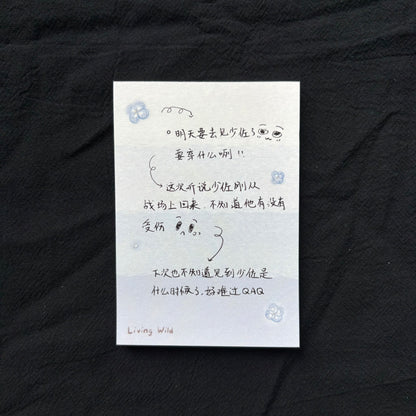 明天要去见少佐了
要穿什么咧!!
这次听说少佐刚从
战场上回来，不知道他有没有
受伤
下次也不知道见到少佐是
什么时候了，好难过QAQ
Living Wild